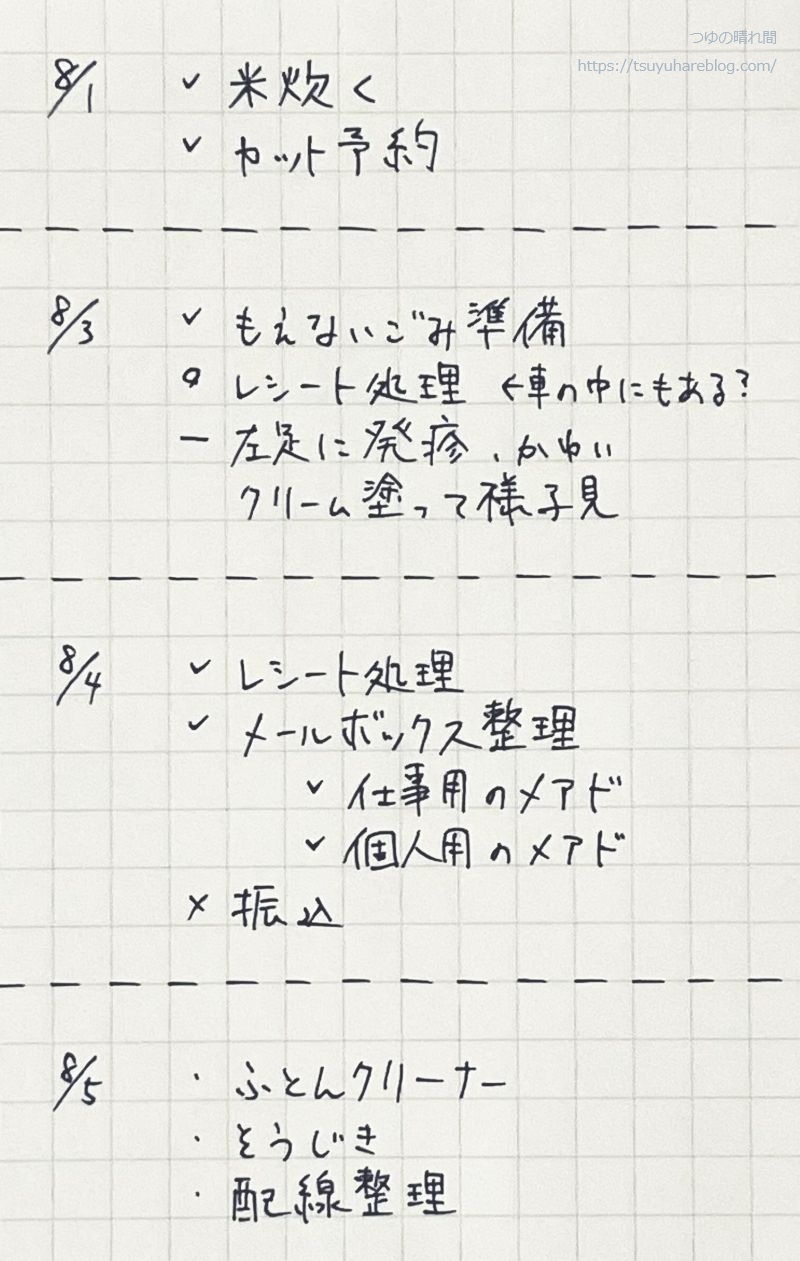 つゆの晴れ間
https://tsuyuhareblog.com/
8/1 ✓ 米炊く
✓ カット予約
8/3 ✓ もえないごみ準備
o レシート処理 ←車の中にもある?
— 左足に発疹、かゆい
クリーム塗って様子見
8/4 ✓ レシート処理
✓ メールボックス整理
✓ 仕事用のメアド
✓ 個人用のメアド
× 振込
8/5 ・ ふとんクリーナー
・ そうじき
・ 配線整理